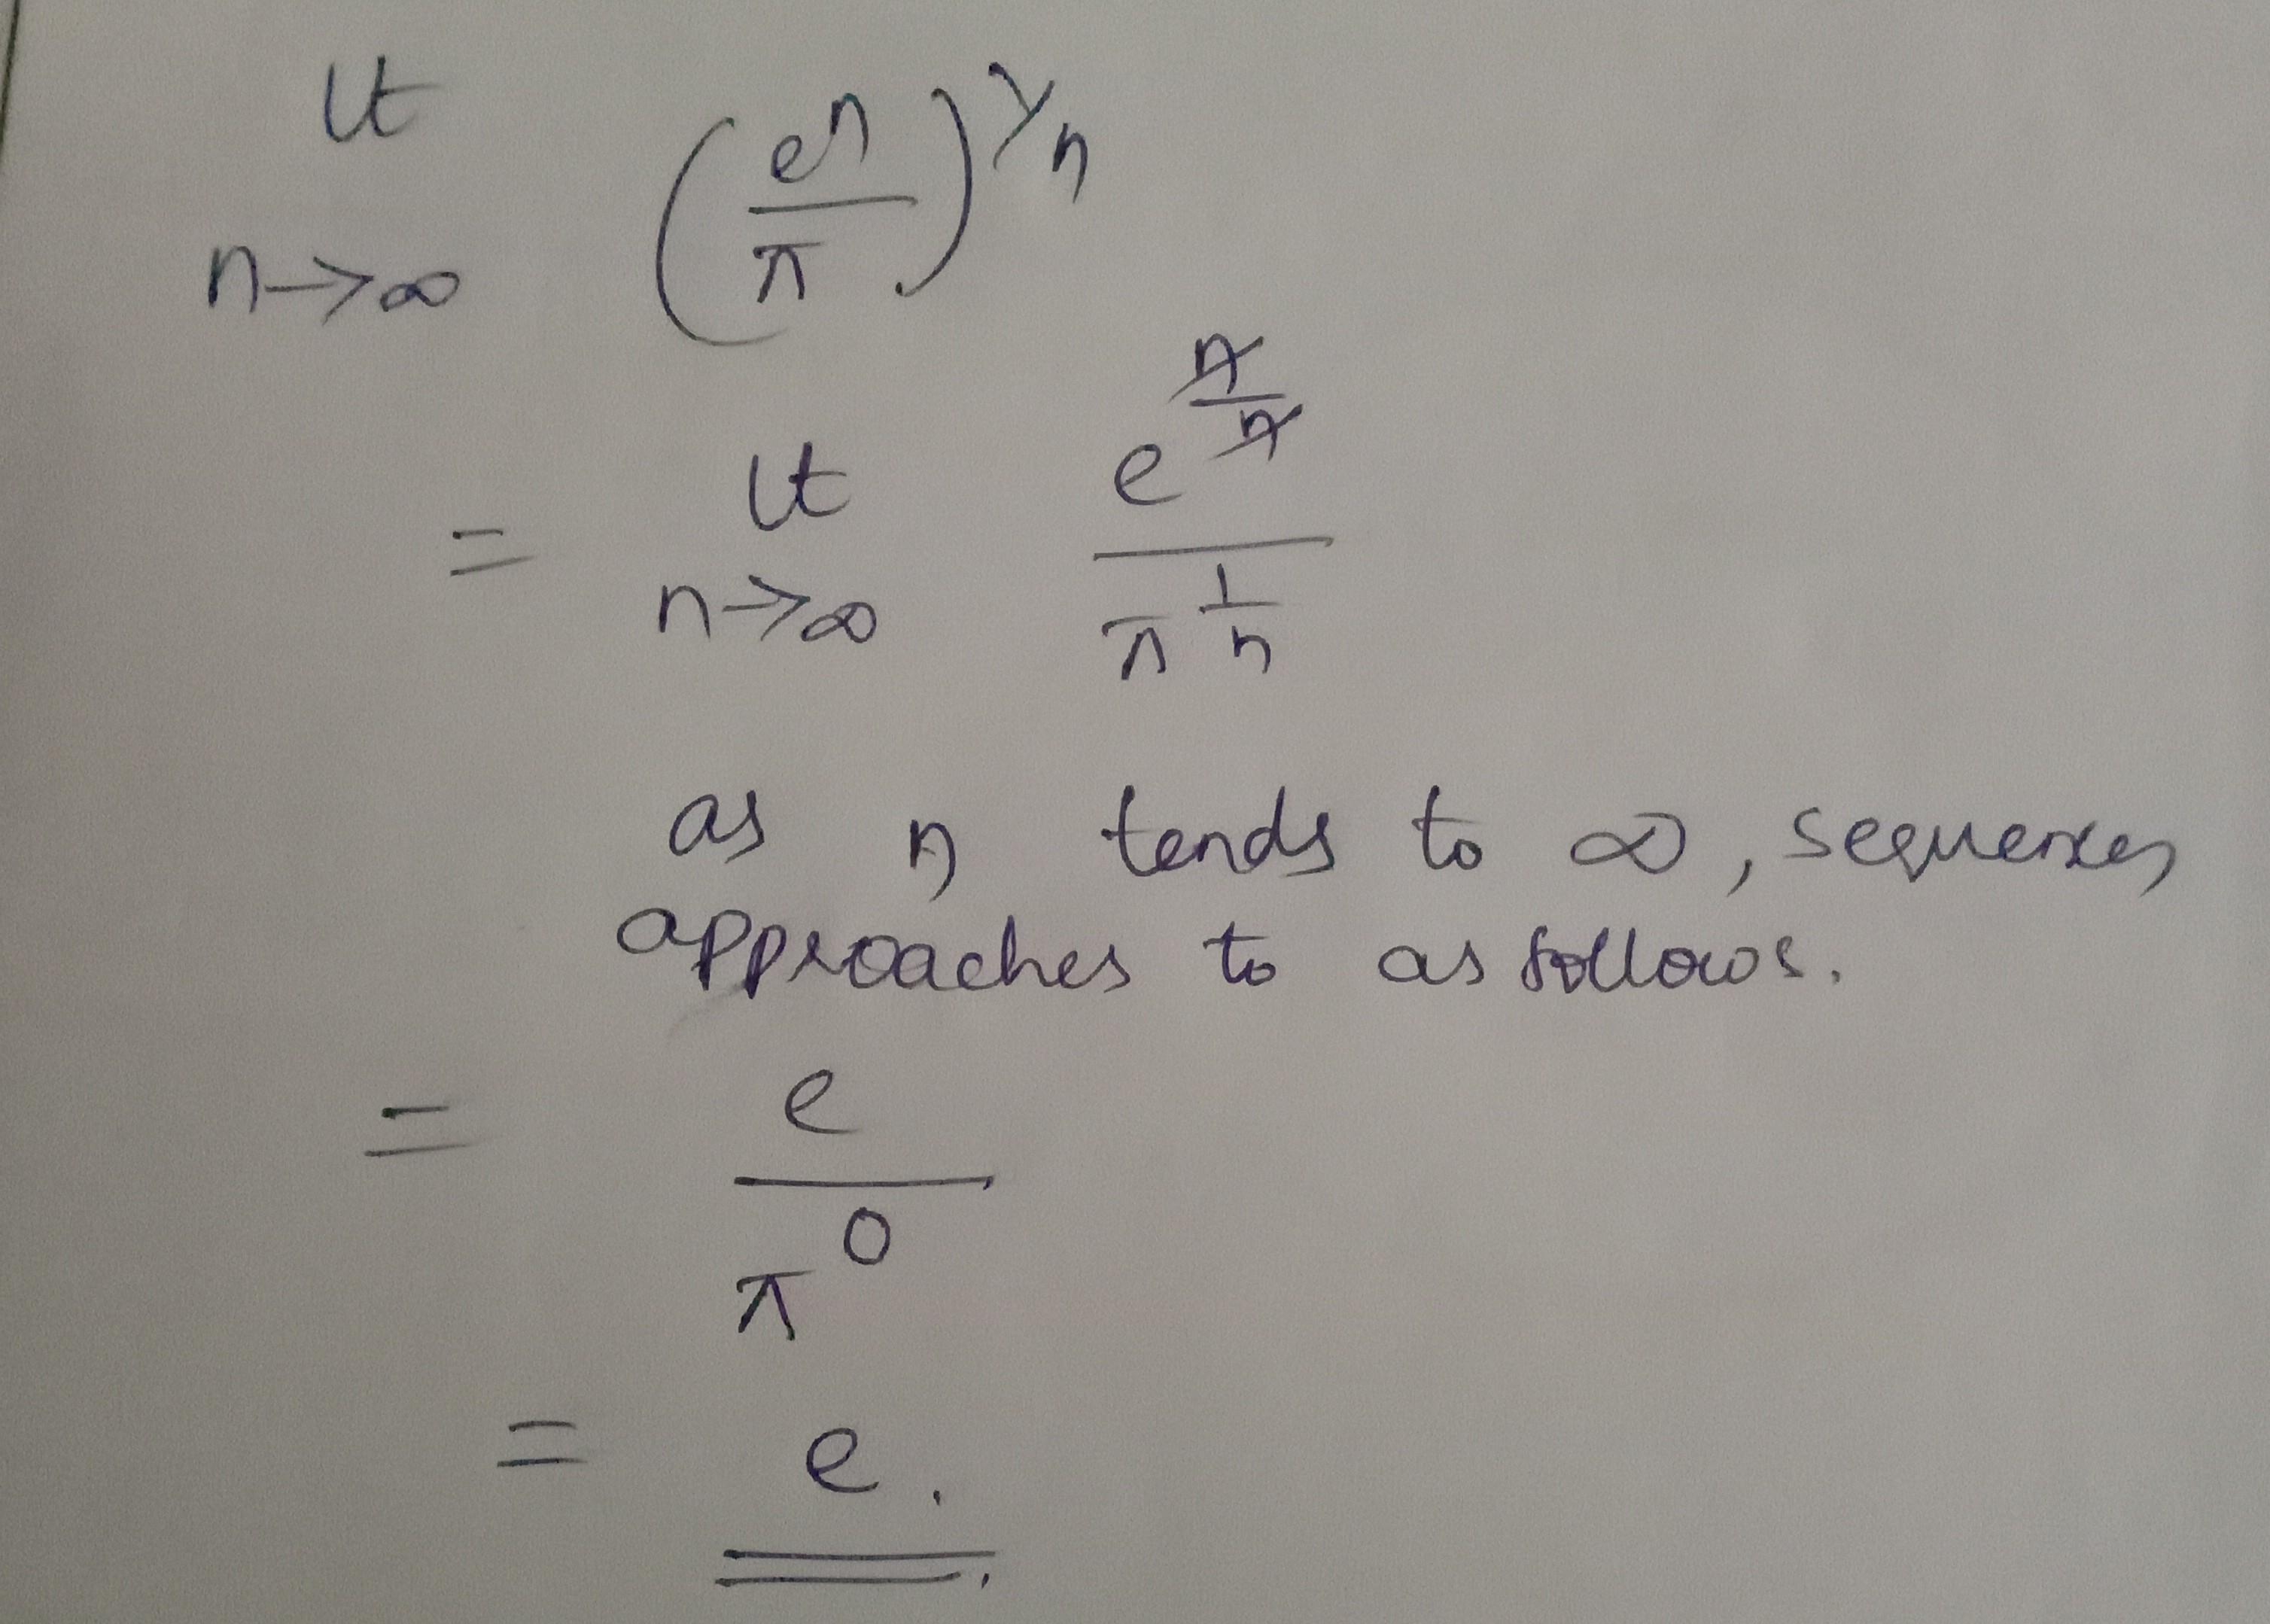 lt n→∞ (eⁿ/π)^(1/n)
= lt n→∞ e^(n/n) / π^(1/n)
as n tends to ∞, sequences
approaches to as follows.
= e/π⁰
= e.